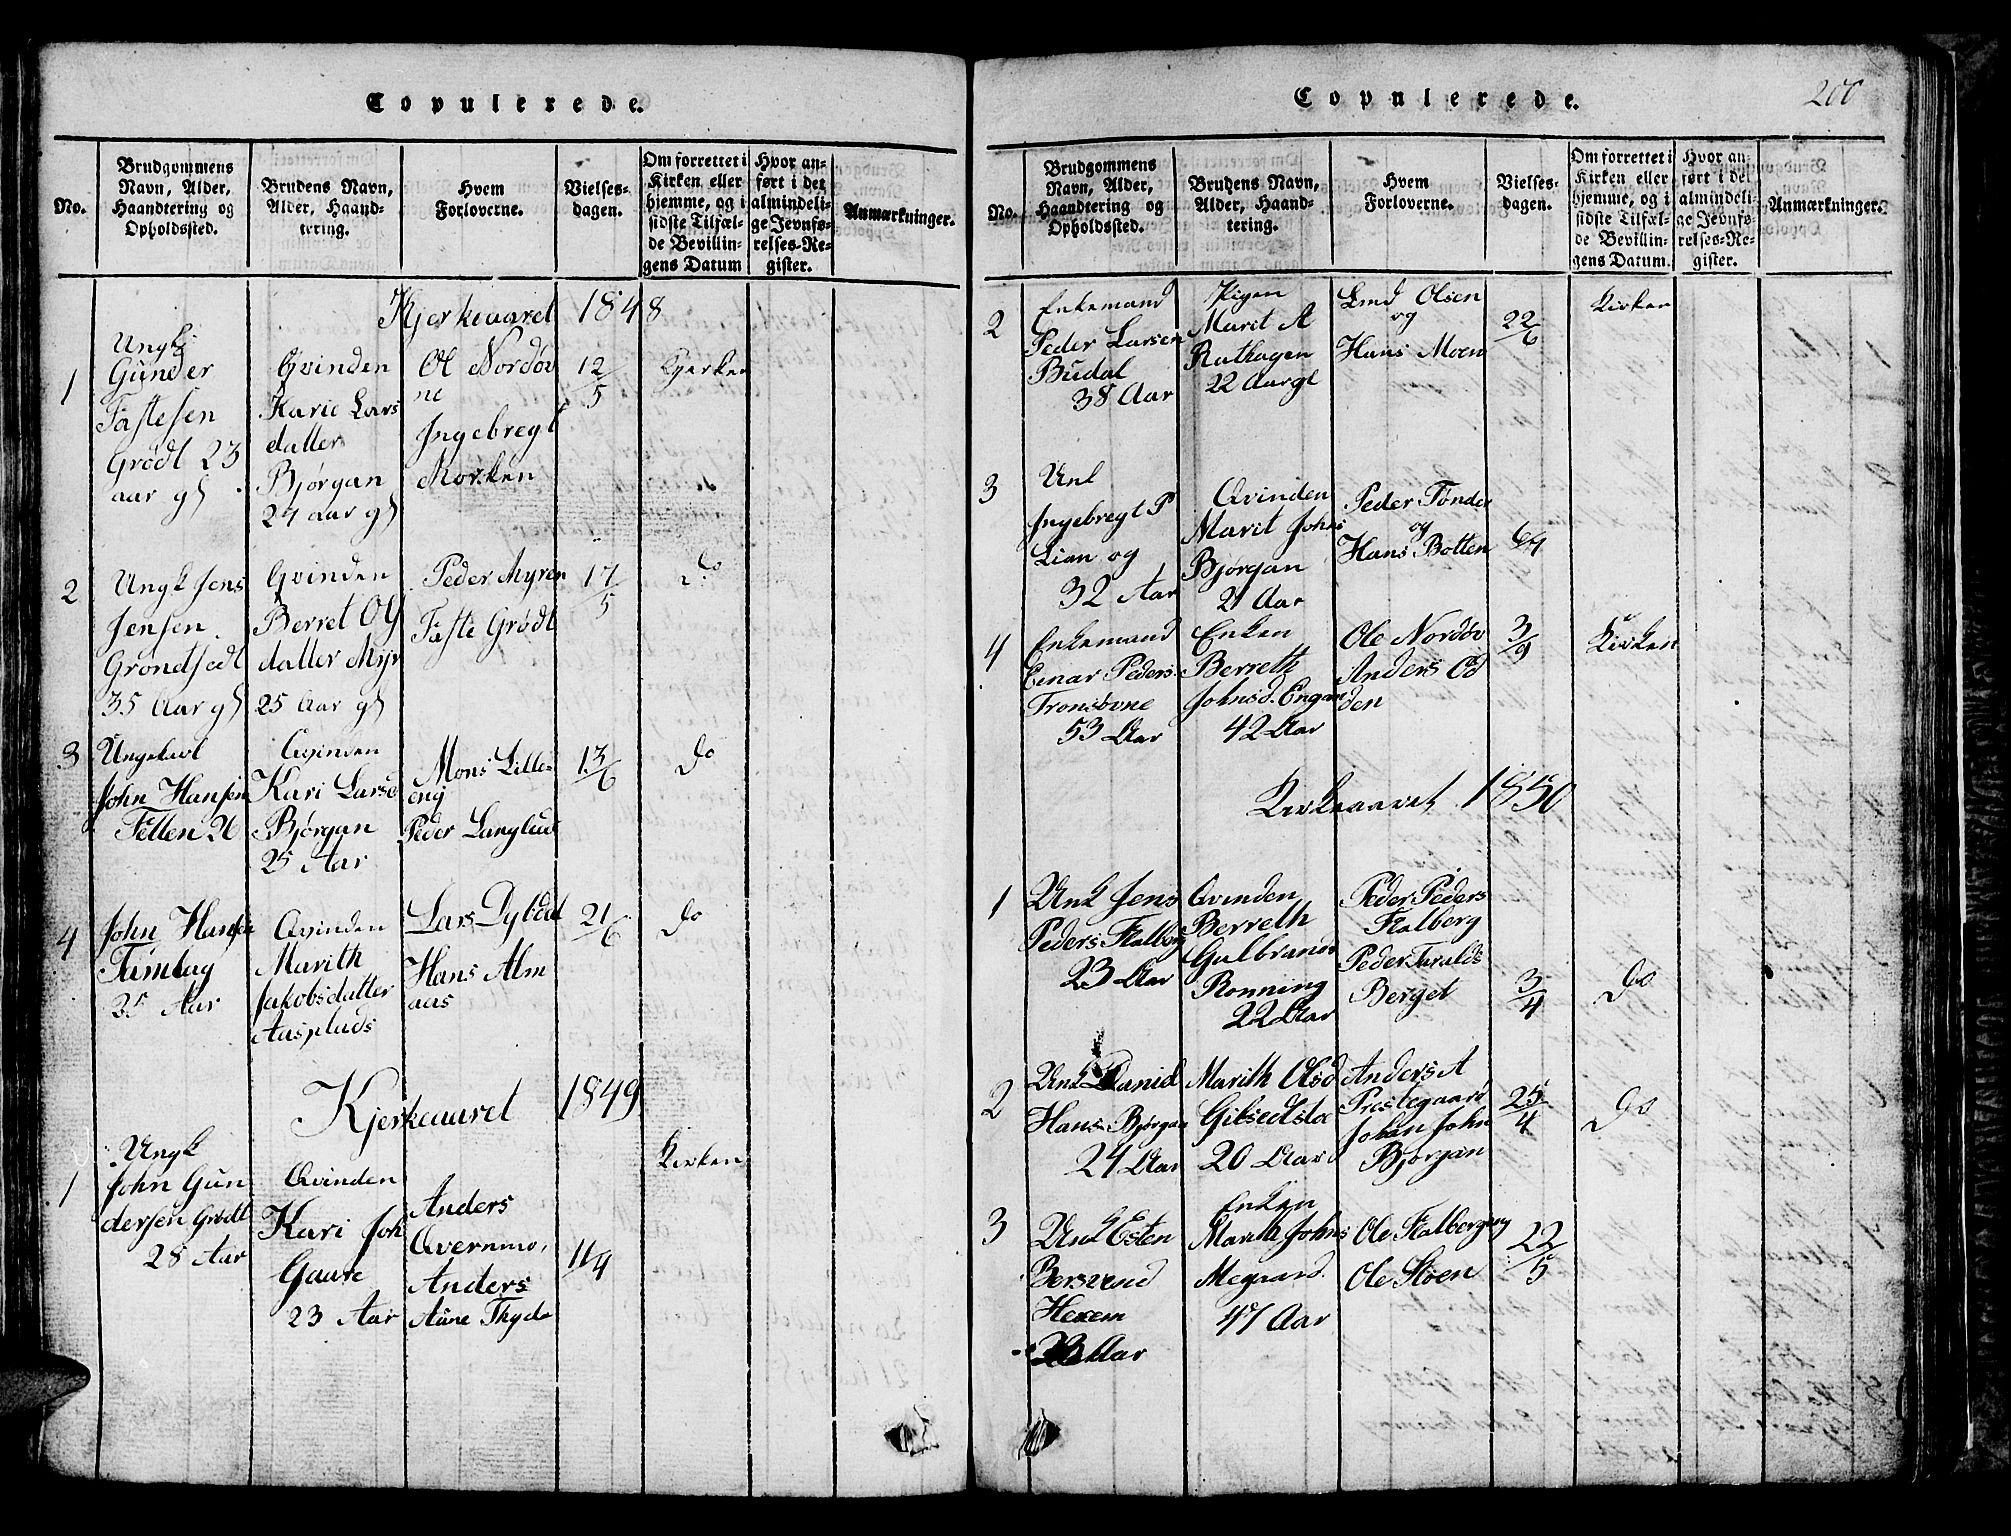 Copulerede.
No.
Brudgommens
Navn, Alder,
Haandtering og
Opholdssted.
Brudens Navn,
Alder, Haand-
tering.
Hvem
Forloverne.
Vielses-
dagen.
Om forrettet i
Kirken eller
hjemme, og i
sidste Tilfæl-
de Bevillin-
gens Datum
Hvor an-
ført i det
almindeli-
ge Jevnfø-
relses-Re-
gister.
Anmærkninger.
Kjerkeaaret 1848
1
Ungk
Gunder
Fastesen
Grødt 23
aar gl
Qvinden
Karie Lars
datter
Bjørgan
24 aar gl
Ol Nordøv
ne
Ingebregt
Morken
12/5
Kjerken
2
Ungk Jens
Jensen
Grondset
35 Aar gl
Qvinden
Berret Ols
datter Myr
25 Aar gl
Peder Myren
Faste Grødt
17/5
do
3
Ungekarl
John Hansen
Fetten 26
Qvinden
Kari Larsd
Bjørgan
25 Aar
Mons Lille
eng
Peder Langlud
13/6
do
4
John Hansen
Tamlag
35 Aar
Qvinden
Marith
Jakobsdatter
Aasplads
Lars Dybdal
Hans Alm
aas
21/6
do
Kjerkeaaret 1849
1
Ungk
John Gun
dersen Grødt
28 Aar
Qvinden
Kari Joh
Gaare
23 Aar
Anders
Qvernmo,
Anders
Aune Thyda
11/4
Kirken
200
Copulerede.
No.
Brudgommens
Navn, Alder,
Haandtering og
Opholdssted.
Brudens Navn,
Alder, Haand-
tering.
Hvem
Forloverne.
Vielses-
dagen.
Om forrettet i
Kirken eller
hjemme, og i
sidste Tilfæl-
de Bevillin-
gens Datum.
Hvor an-
ført i det
almindeli-
ge Jevnfø-
relses-Re-
gister.
Anmærkninger.
2
Enkemand
Peder Larsen
Budal
38 Aar
Pigen
Marit A
Rathagen
22 Aargl
Lmd Olsen
og
Hans Moen
22/6
Kirken
3
Unk
Ingebregt P
Lian og
32 Aar
Qvinden
Marit Johns
Bjørgan
21 Aar
Peder Tønder
og
Hans Botten
6/4
4
Enkemand
Einar Peders
Tronsøvne
53 Aar
Enken
Berreth
Johnsd. Engan
42 Aar
Ole Nordøv
Anders Od
den
3/9
Kirken
Kirkeaaret 1850
1
Unk Jens
Peders Flalberg
23 Aar
Qvinden
Berreth
Gulbrands
Ronning
22 Aar
Peder Peders
Flalberg
Peder Taralds
Berget
3/4
do
2
Unk Danid
Hans Bjørgan
24 Aar
Marith Olsd
Gilsedtstø
20 Aar
Anders A
Prastegaard
Johan John
Bjorgan
25/4
do
3
Unk Esten
Bersvend
Hexem
23 Aar
Enken
Marith Johns
Megaard
47 Aar
Ole Flalberg
Ole Støen
22/5